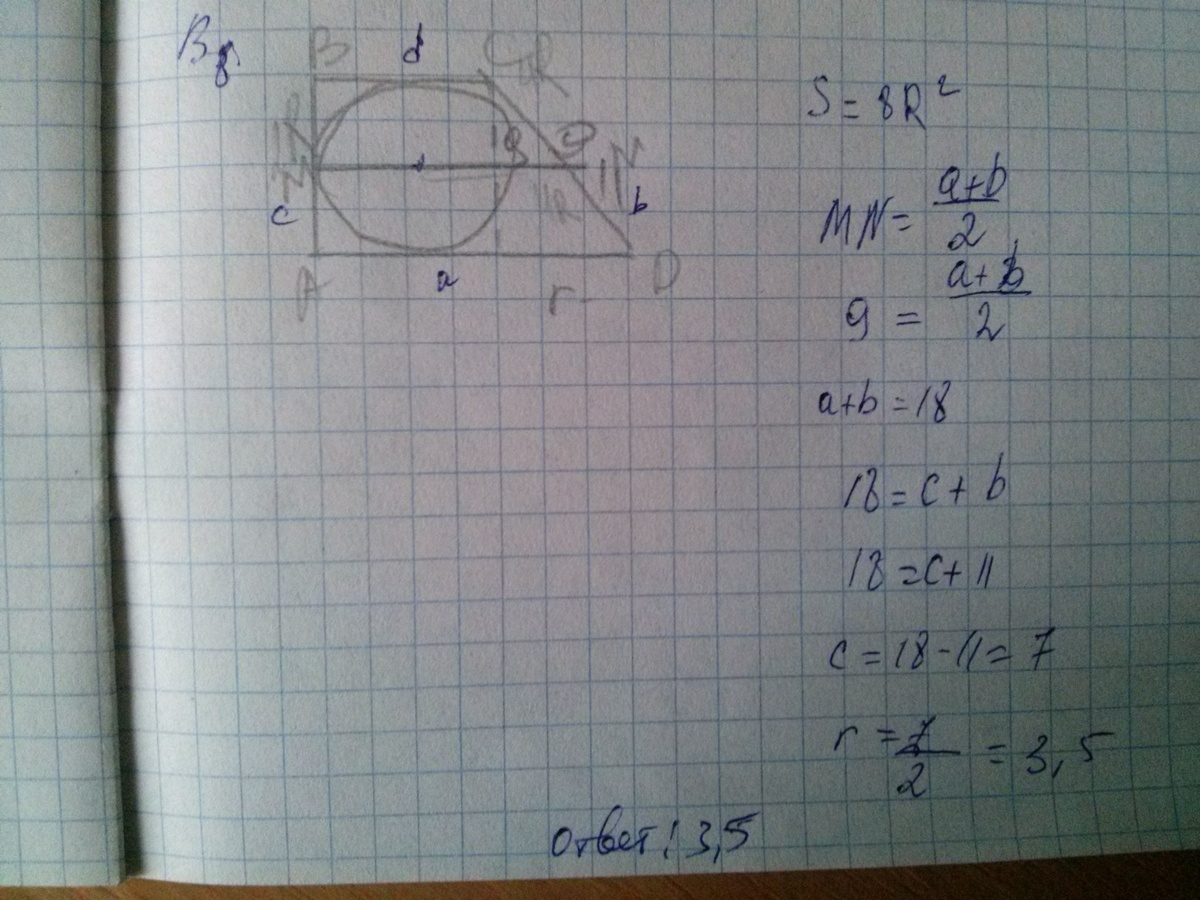 B8
B d C
c b
A a r D
S = 8R²
MN = (a+b)/2
9 = (a+b)/2
a+b = 18
18 = c + b
18 = c + 11
c = 18 - 11 = 7
r = 7/2 = 3,5
ответ: 3,5